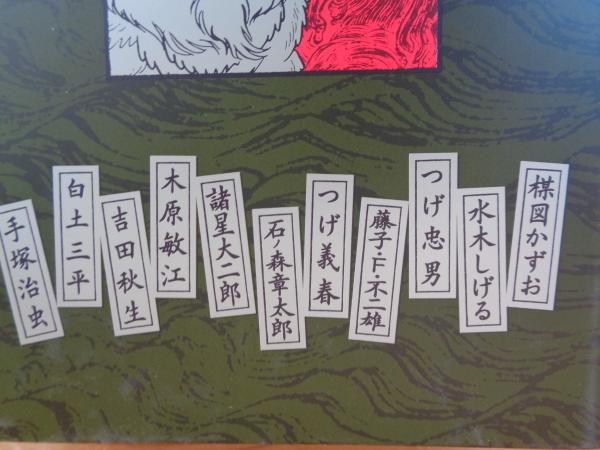 楳図かずお
水木しげる
つげ忠男
藤子・F・不二雄
つげ義春
石ノ森章太郎
諸星大二郎
木原敏江
吉田秋生
白土三平
手塚治虫